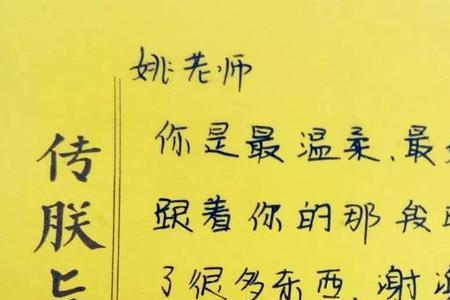 姚老师
你是最温柔、最
跟着你的那段
了很多东西,谢
传
朕